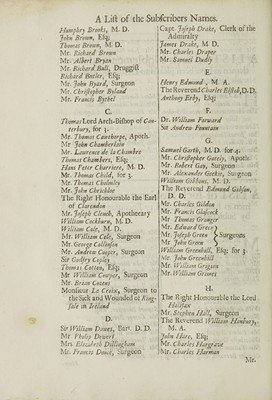 A List of the Subscribers Names.
Humphry Brooks, M. D.
John Brown, Esq;
Thomas Brown, M. D.
Mr. Richard Brown
Mr. Albert Bryan
Mr. Richard Bull, Druggist
Richard Butler, Esq;
Mr. John Byard, Surgeon
Mr. Christopher Byland
Mr. Francis Byrhel
C.
Thomas Lord Arch-Bishop of Can-
terbury, for 3.
Mr. Thomas Cawthorpe, Apoth.
Mr. John Chamberlain
Mr. Laurence de la Chambre
Thomas Chambers, Esq;
Hans Peter Charriere, M. D.
Mr. Thomas Child, for 3.
Mr. Thomas Cholmley
Mr. John Chrichloe
The Right Honourable the Earl
of Clarendon
Mr. Joseph Clench, Apothecary
William Cockburn, M. D.
William Cole, M. D.
Mr. William Cole, Surgeon
Mr. George Collinson
Mr. Andrew Cooper, Surgeon
Sir Godfry Copley
Thomas Cotton, Esq;
Mr. William Cowper, Surgeon
Mr. Brian Cozens
Monsieur Le Croix, Surgeon to
the Sick and Wounded of King-
sale in Ireland
D.
Sir William Dawes, Bar. D. D.
Mr. Philip Dewert
Mrs Elizabeth Dillingham
Mr. Francis Douce, Surgeon
Capt Joseph Drake, Clerk of the
Admiralty
James Drake, M. D.
Mr. Charles Draper
Mr. Samuel Dudly
E.
Henry Edmond, M. A.
The Reverend Charles Elsted, D.D.
Anthony Erby, Esq;
F.
Dr. William Forward
Sir Andrew Fountain
G.
Samuel Garth, M. D. for 4.
Mr. Christopher Gately, Apoth.
Mr. Robert Gay, Surgeon
Mr. Alexander Geekie, Surgeon
William Gibbons, M. D.
The Reverend Edmund Gibson,
D. D.
Mr. Charles Gildon
Mr. Francis Glascock
Mr. Thomas Grainger
Mr. Edward Green
Mr. Joseph Green Surgeons
Mr John Green
William Greenhill, Esq; for 3.
Mr. John Greenhill
Mr. William Gregson
Mr. William Grimes
H.
The Right Honourable the Lord
Halifax
Mr. Stephen Hall, Surgeon
The Reverend William Hanbury,
M. A.
John Hare, Esq;
Mr. Charles Hargrave
Mr. Charles Harman
Mr.